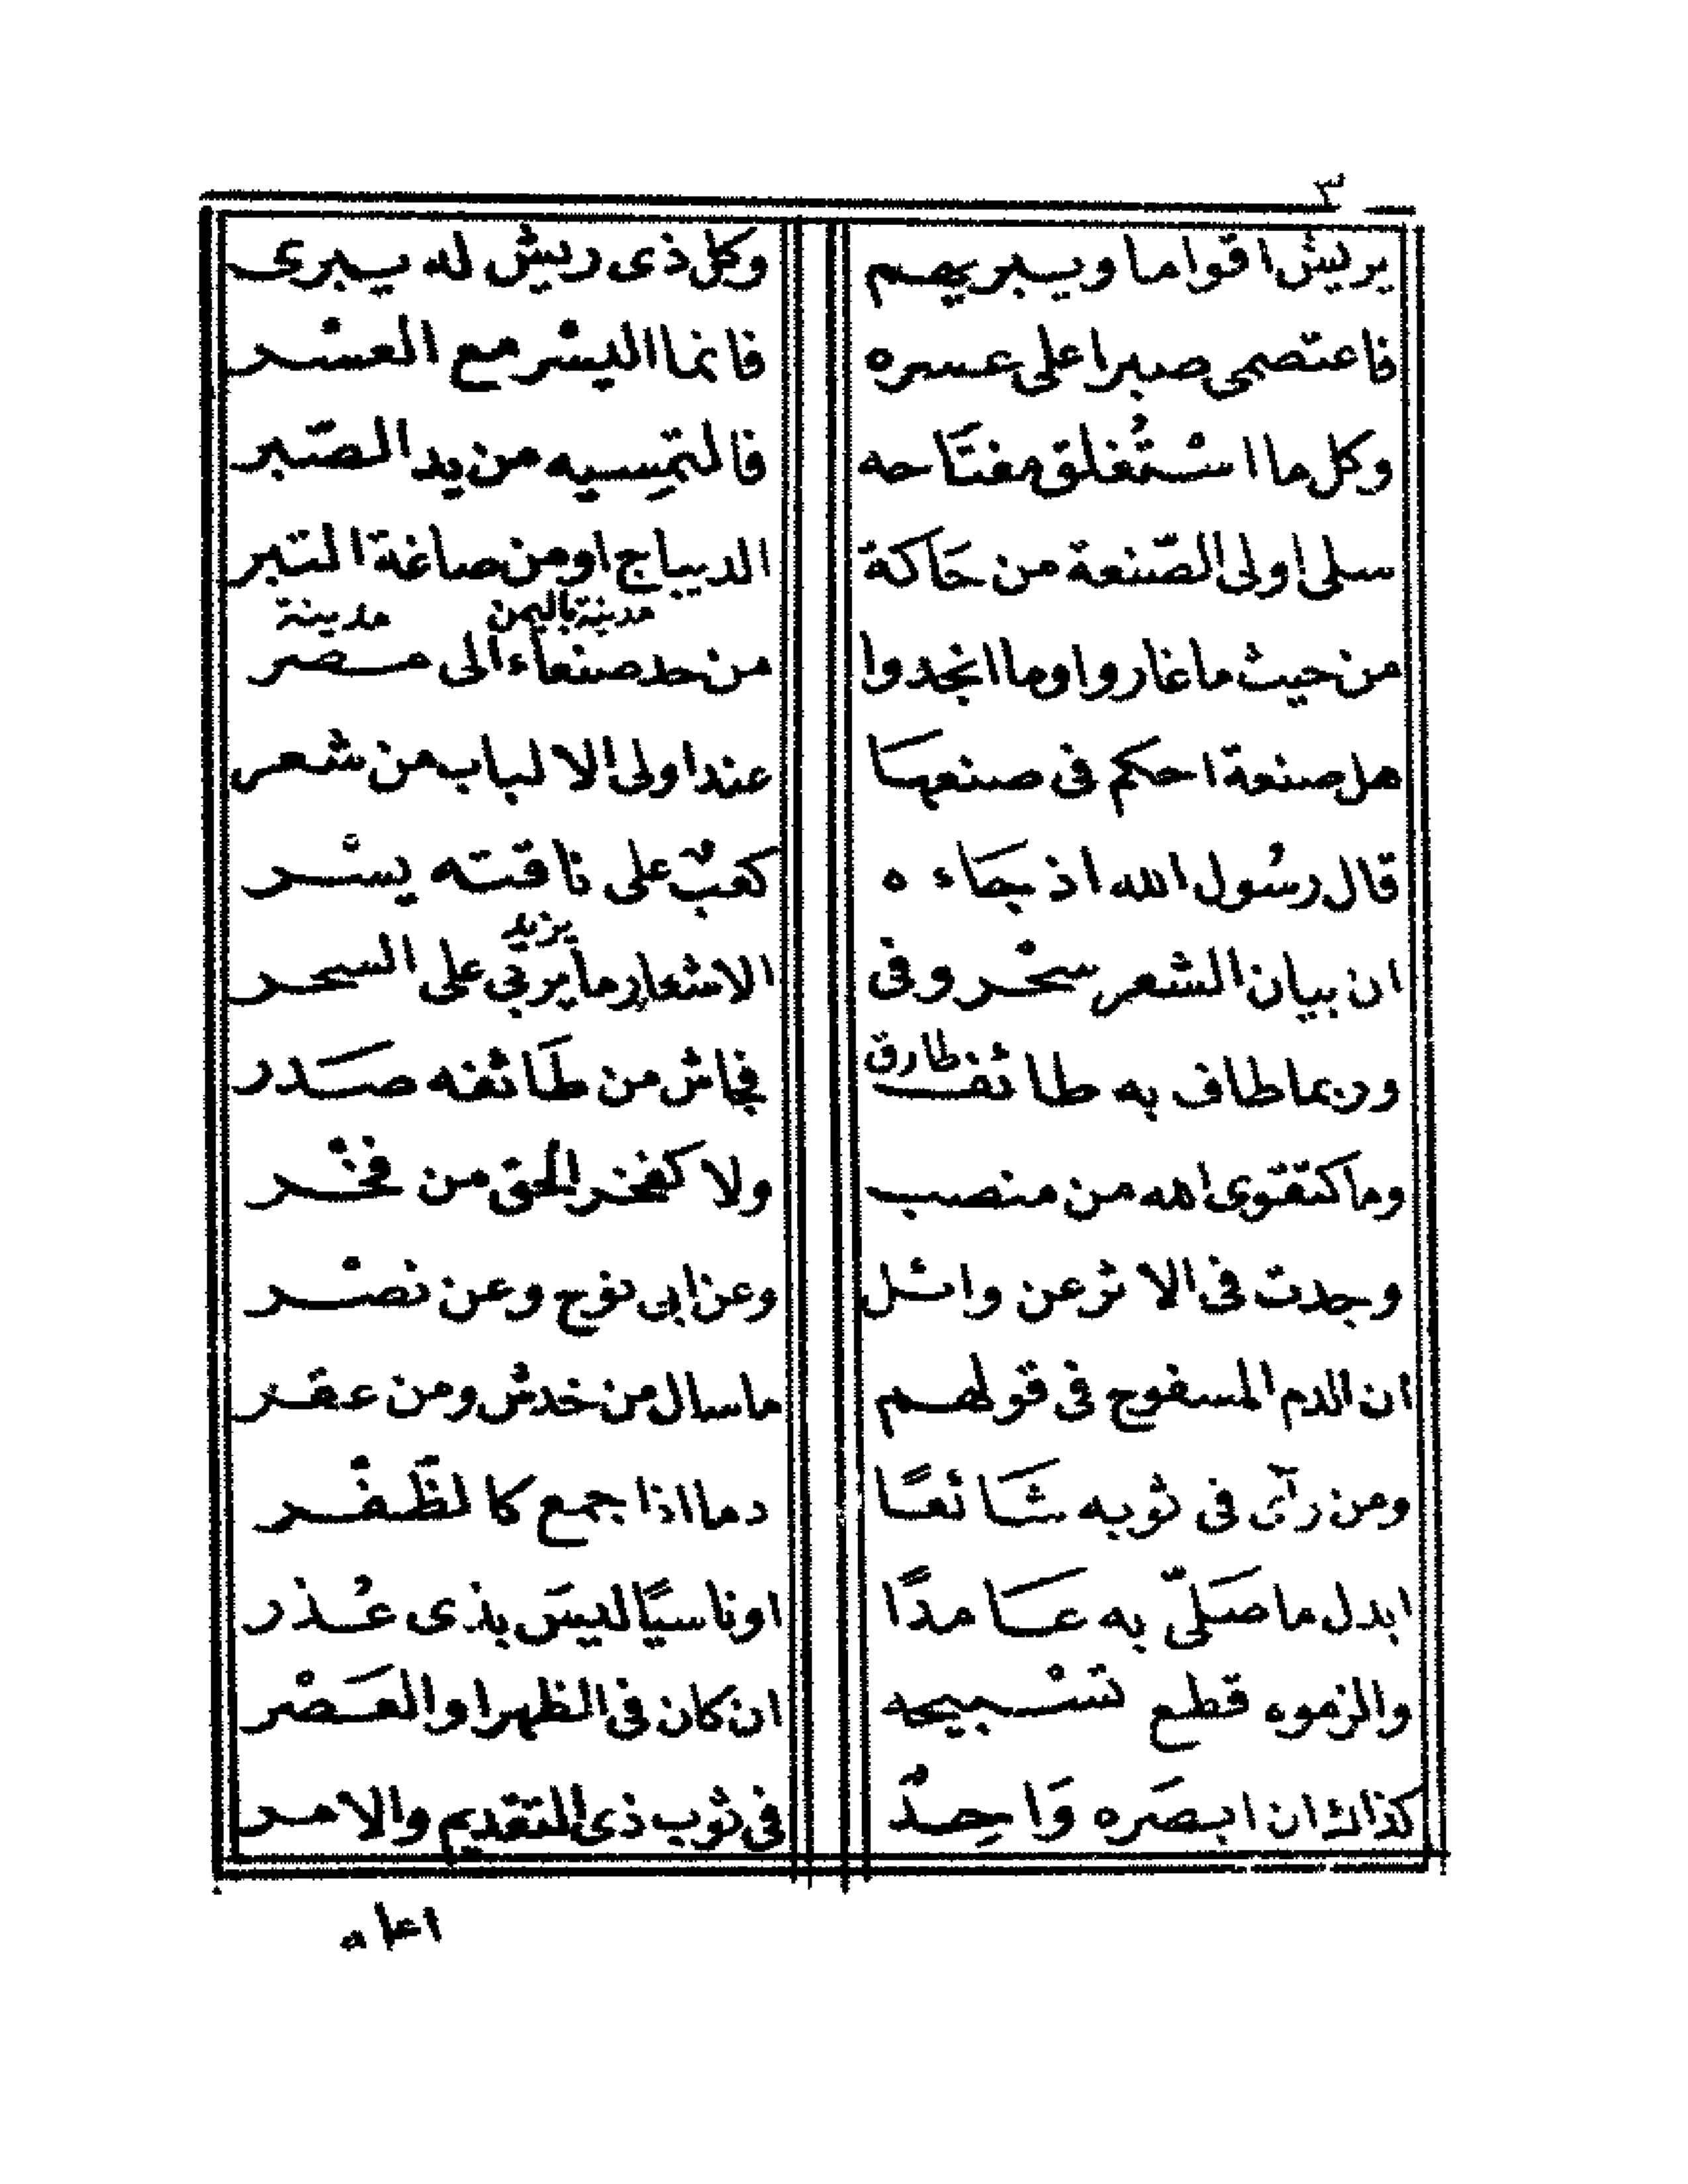 ٣
يريش اقواما ويبريهم وكل ذى ريش له يبرى
فاعتصمى صبرا على عسره فانما اليسْر مع العسْر
وكل ما استُغلق مفتَاحه فالتمِسيه من يد الصّبر
سلى اولى الصّنعة من حَاكة الديباج او من صاغة التبر
مدينة باليمن مدينة
من حيث ما غاروا وما انجدوا من حد صنعاء الى مصر
هل صنعة احكم فى صنعهَا عند اولى الالباب من شعر
قال رسُول الله اذ جَاءه كعبٌ على ناقته يسْر
يزيد
ان بيان الشعر سحْر وفى الاشعار ما يربى على السحر
طارق
وربما طاف به طائف فجاش من طَائفه صَدر
وما كتقوى الله من منصب ولا كفخر الحق من فخْر
وجدت فى الاثر عن وائل وعن ابى نوح وعن نصْر
ان الدم المسفوح فى قولهم ما سال من خدش ومن عقر
ومن رآى فى ثوبه شَائعًا دما اذا جمع كالظَفْر
ابدل ما صَلىّ به عَامدًا او ناسيًا ليسَ بذى عُذر
والزموه قطع تسْبيحه ان كان فى الظهر او العَصْر
كذاك ان ابصَره وَاحِدٌ فى ثوب ذى التقديم والامر